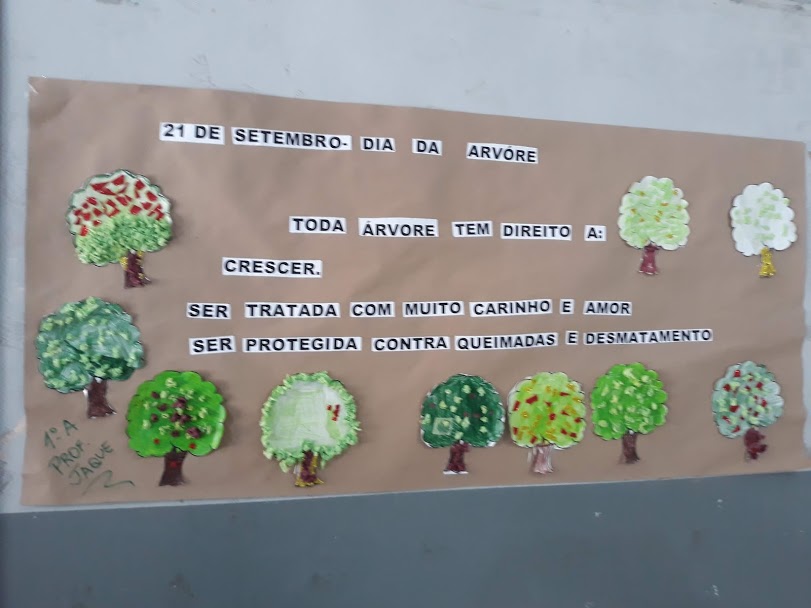 21 DE SETEMBRO- DIA DA ARVÓRE
TODA ÁRVORE TEM DIREITO A:
CRESCER.
SER TRATADA COM MUITO CARINHO E AMOR
SER PROTEGIDA CONTRA QUEIMADAS E DESMATAMENTO
1º A
PROF.
JAQUE